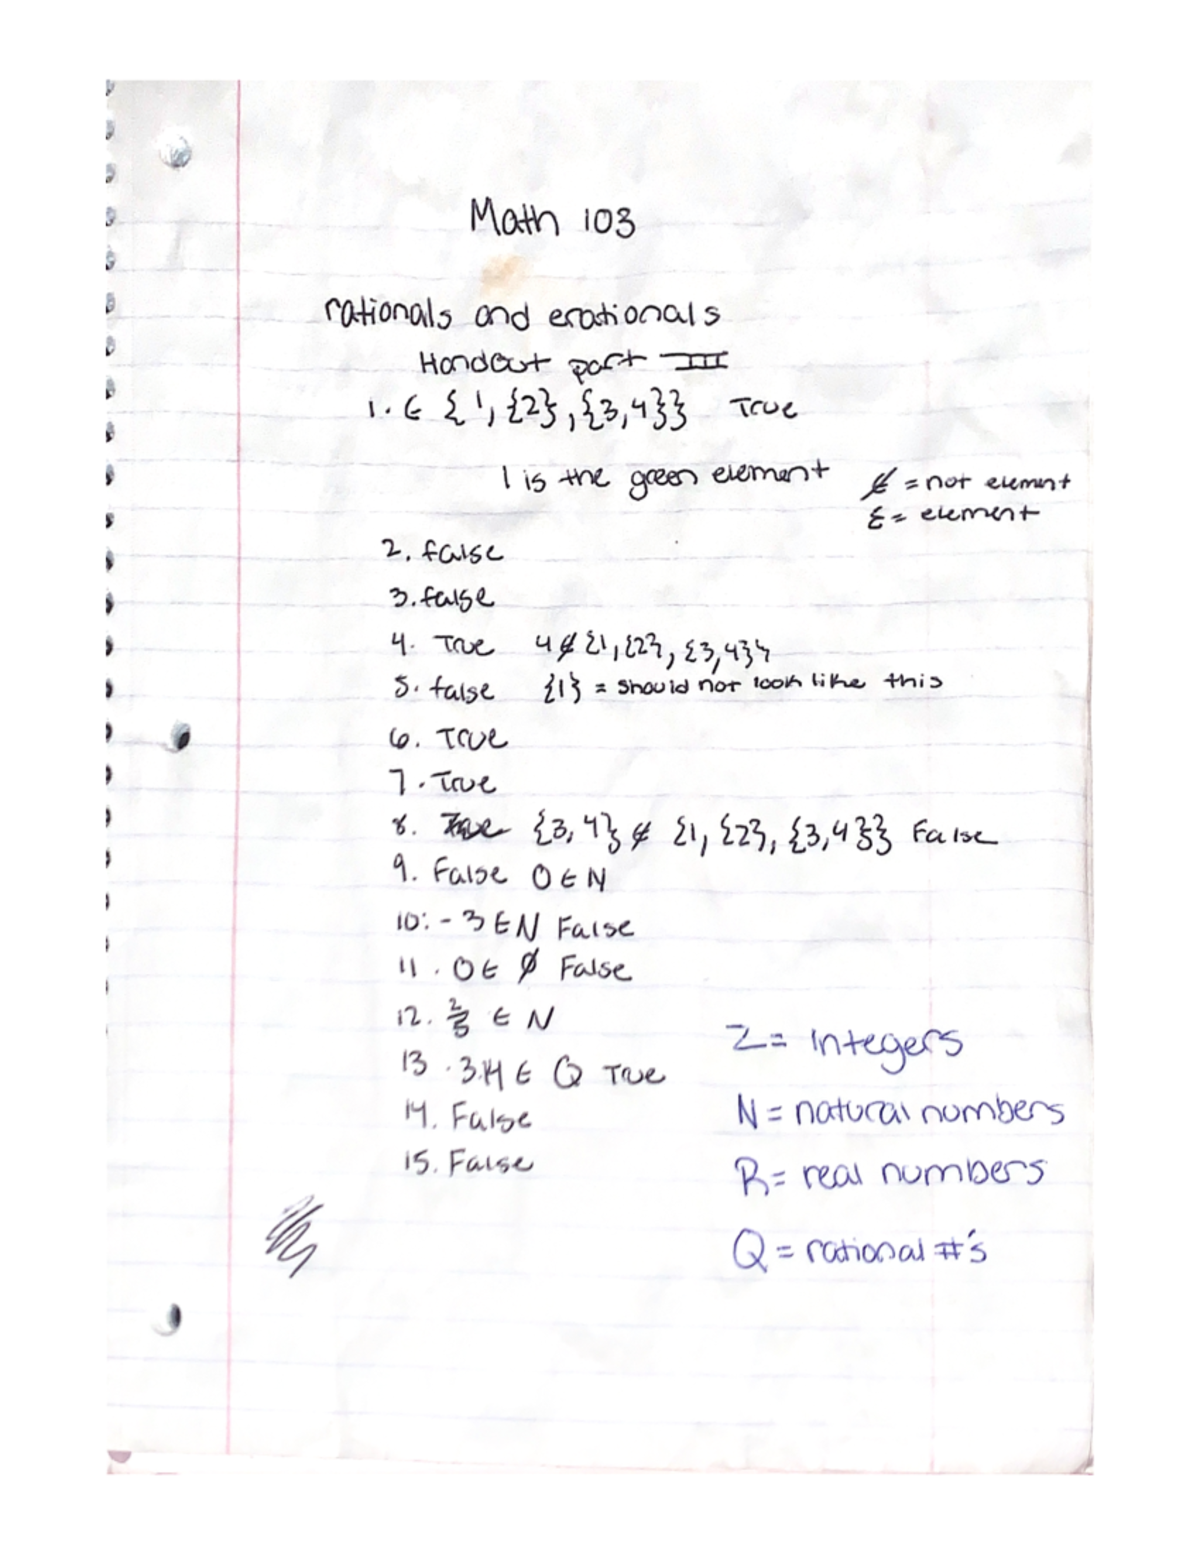 Math 103
rationals and erationals
Handout part III
1. ∈ {1, {2}, {3,4}} True
1 is the green element
∉ = not element
∈ = element
2. false
3. false
4. True 4 ∉ {1, {2}, {3,4}}
5. false {1} = should not look like this
6. True
7. True
8. {3, 4} ∉ {1, {2}, {3,4}} False
9. False 0 ∈ N
10. -3 ∈ N False
11. 0 ∈ ∅ False
12. 2/5 ∈ N
13. 3.14 ∈ Q True
14. False
15. False
Z = Integers
N = natural numbers
R = real numbers
Q = rational #'s